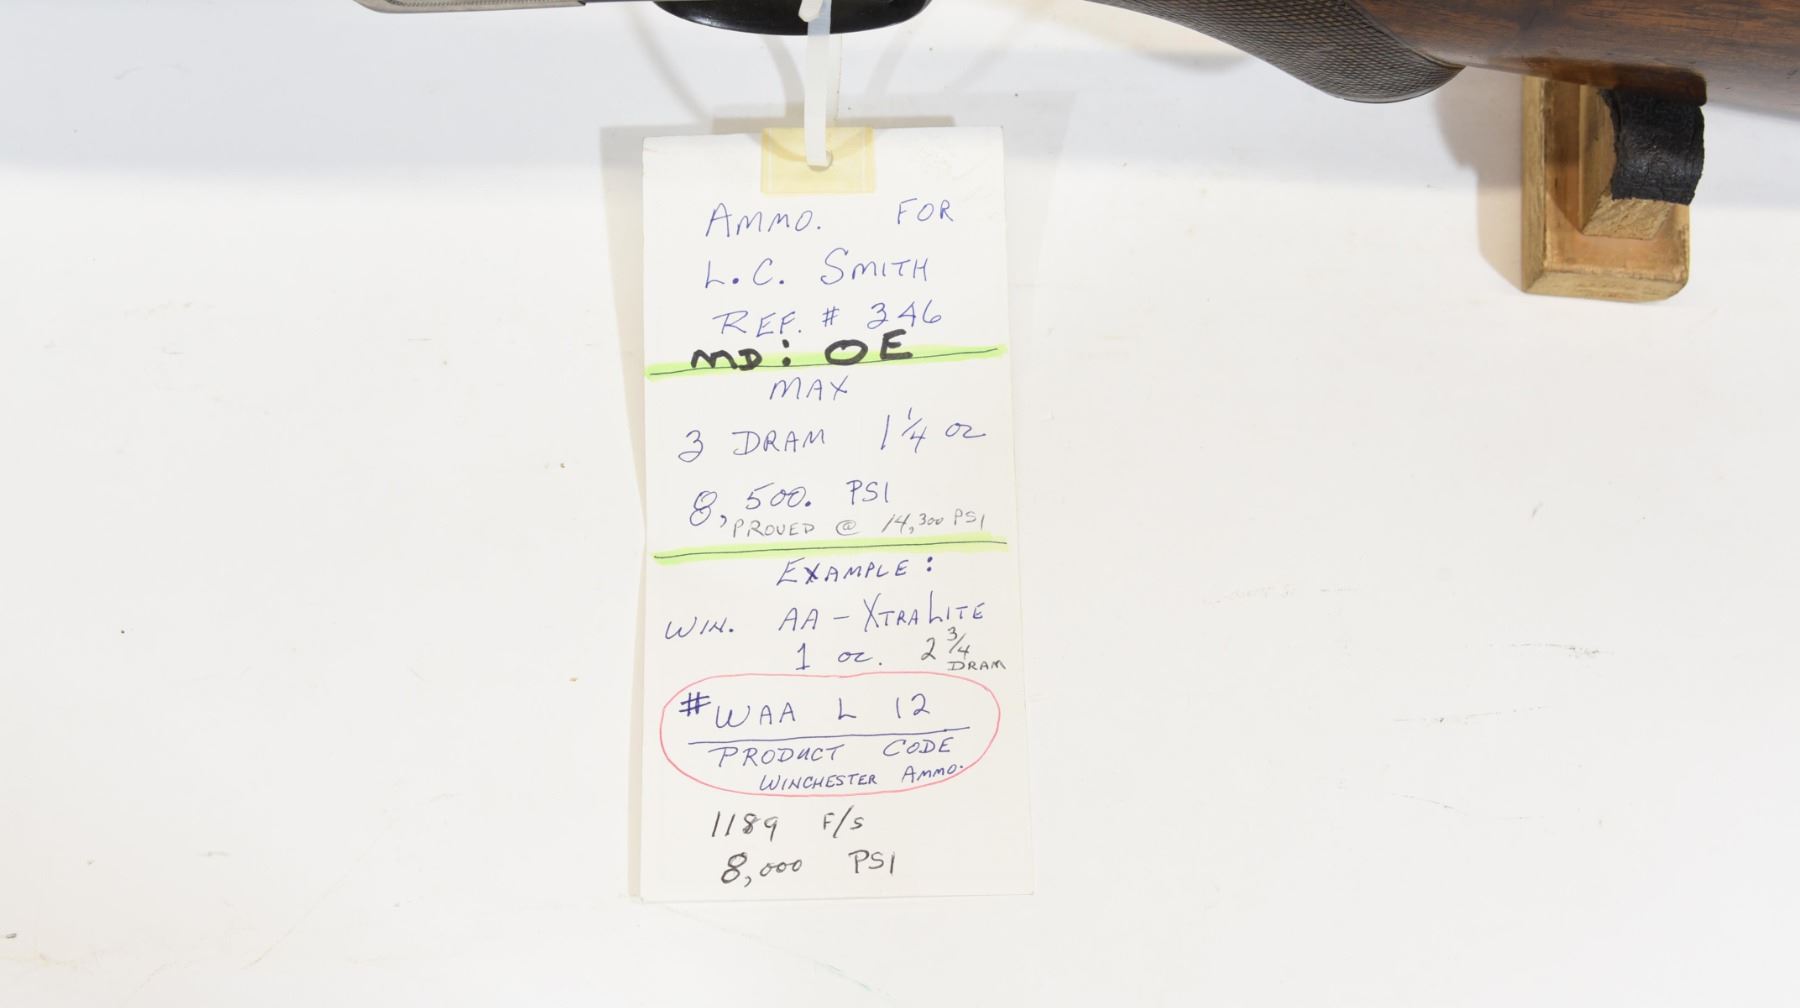 AMMO. FOR
L.C. SMITH
REF. # 346
MD: OE
MAX
3 DRAM 1 1/4 oz
8,500. PSI
PROVED @ 14,300 PSI
EXAMPLE:
WIN. AA - XTRALITE
1 oz. 2 3/4 DRAM
# WAA L 12
PRODUCT CODE
WINCHESTER AMMO.
1189 F/S
8,000 PSI